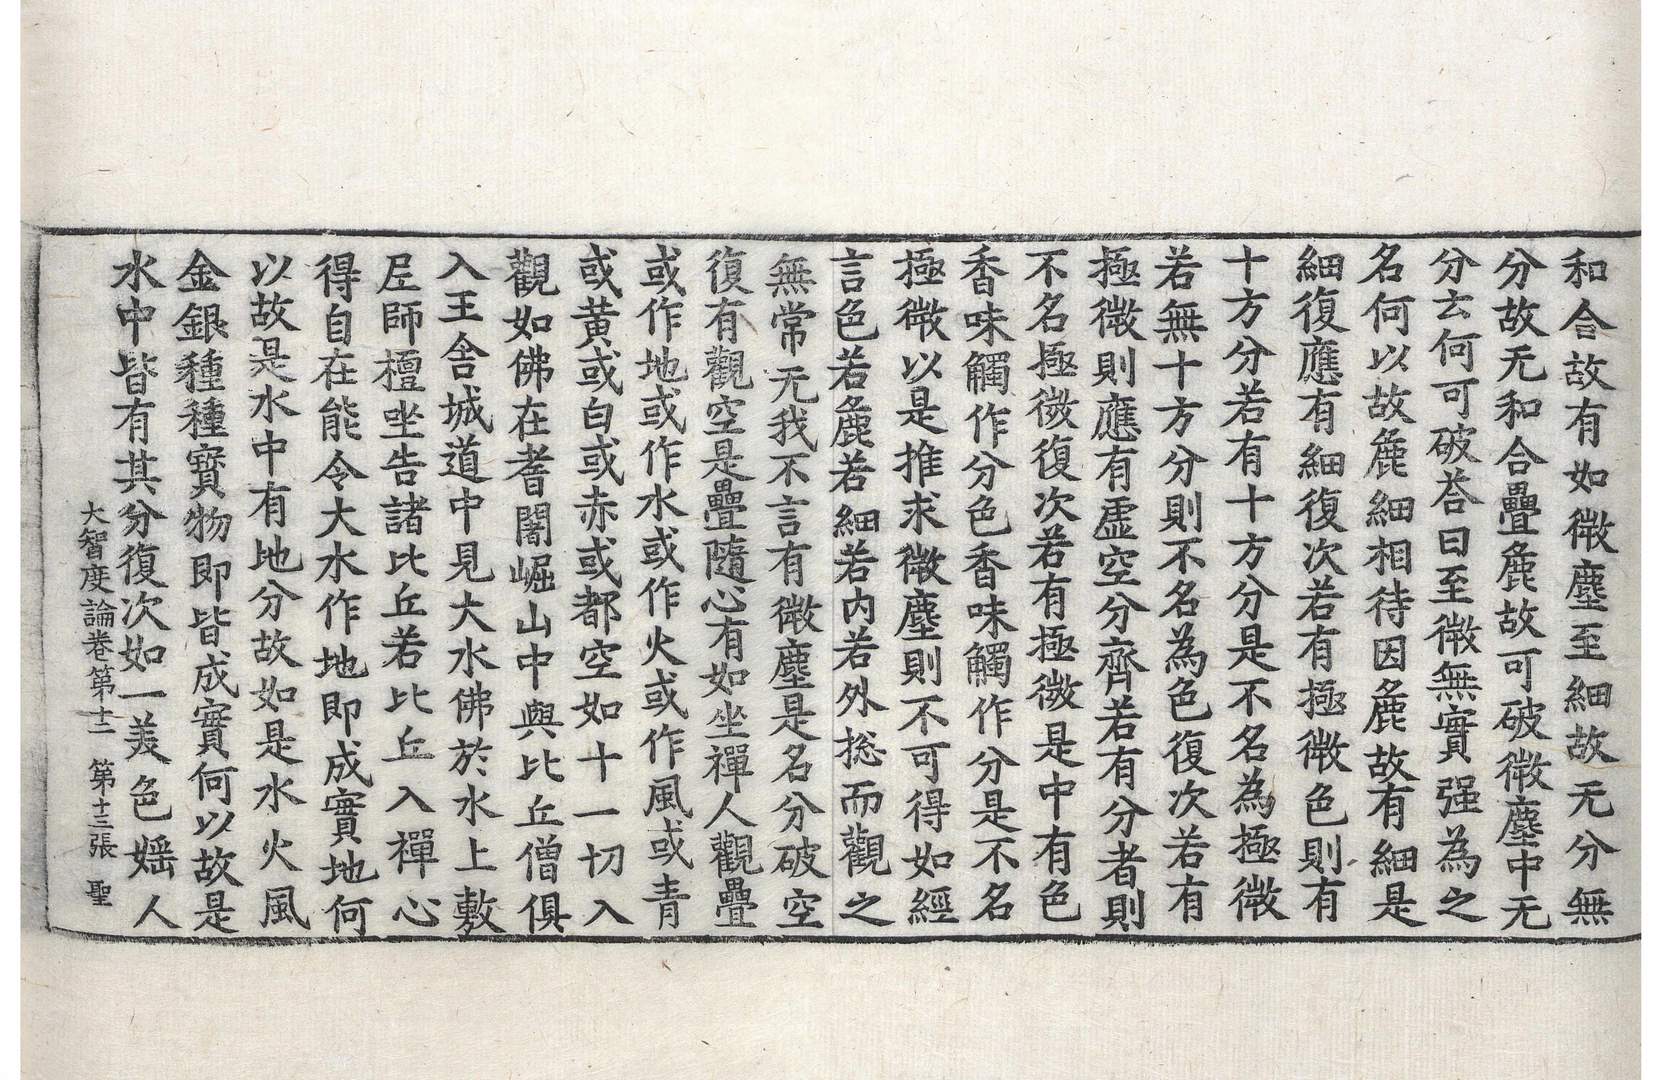 和合故有如微塵至細故无分無
分故无和合疊麁故可破微塵中无
分云何可破荅曰至微無實强為之
名何以故麁細相待因麁故有細是
細復應有細復次若有極微色則有
十方分若有十方分是不名為極微
若無十方分則不名為色復次若有
極微則應有虛空分齊若有分者則
不名極微復次若有極微是中有色
香味觸作分色香味觸作分是不名
極微以是推求微塵則不可得如經
言色若麁若細若內若外揔而觀之
無常无我不言有微塵是名分破空
復有觀空是疊隨心有如坐禪人觀疊
或作地或作水或作火或作風或青
或黃或白或赤或都空如十一切入
觀如佛在耆闍崛山中與比丘僧俱
入王舍城道中見大水佛於水上敷
尼師檀坐告諸比丘若比丘入禪心
得自在能令大水作地即成實地何
以故是水中有地分故如是水火風
金銀種種寶物即皆成實何以故是
水中皆有其分復次如一美色婬人
大智度論卷第十二 第十三張 聖